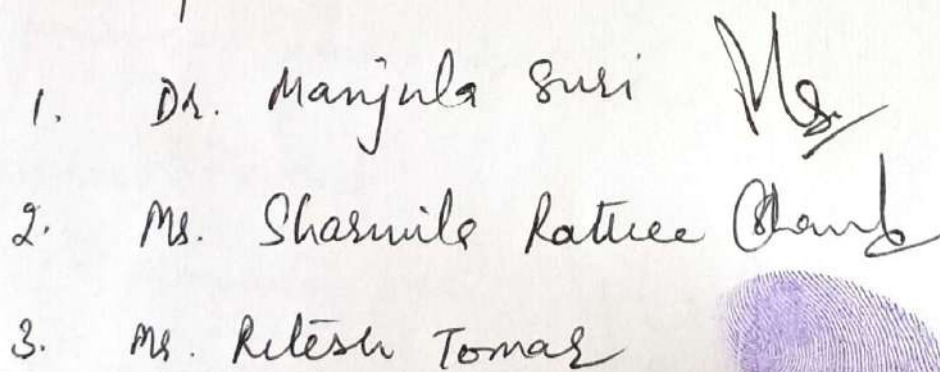 1. Dr. Manjula Suri
2. Ms. Sharmila Rathee
3. Mr. Ritesh Tomar